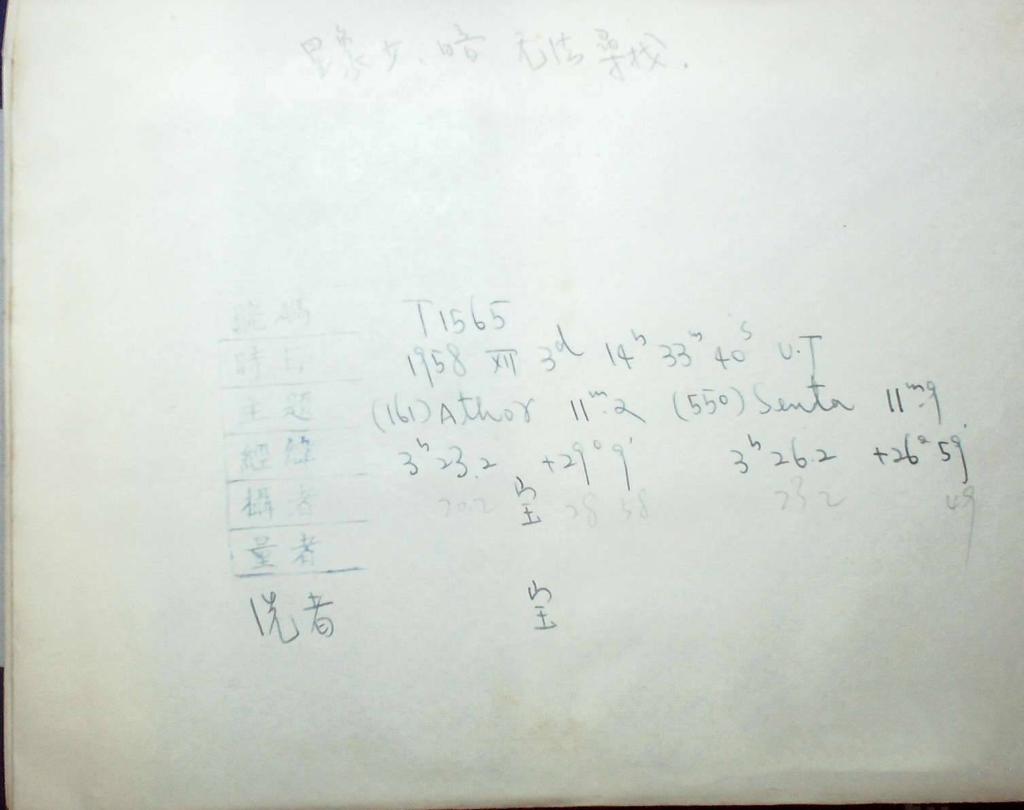 星象少.暗 无法寻找.
號碼 T1565
時日 1958 XII 3d 14h 33m 40s U.T
主題 (161) Athor 11m.2 (550) Senta 11m.9
經緯 3h 23.2 +29° 9' 3h 26.2 +26° 59'
攝者 20.2 28 58 23 2 49
量者
洗者